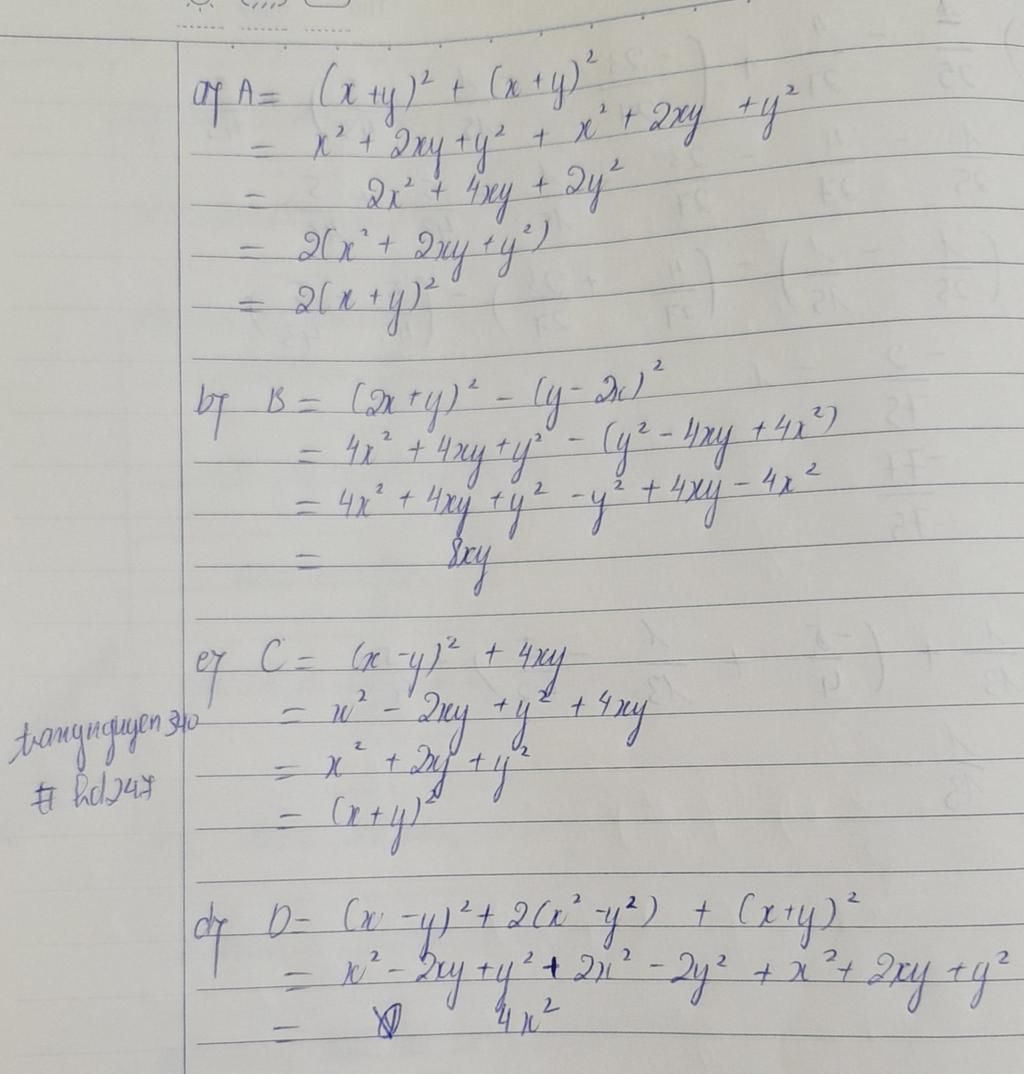 a) A = (x+y)² + (x+y)²
= x² + 2xy + y² + x² + 2xy + y²
= 2x² + 4xy + 2y²
= 2(x² + 2xy + y²)
= 2(x+y)²
b) B = (2x+y)² - (y-2x)²
= 4x² + 4xy + y² - (y² - 4xy + 4x²)
= 4x² + 4xy + y² - y² + 4xy - 4x²
= 8xy
c) C = (x-y)² + 4xy
= x² - 2xy + y² + 4xy
= x² + 2xy + y²
= (x+y)²
trangnguyen340
# hd247
d) D = (x-y)² + 2(x²-y²) + (x+y)²
= x² - 2xy + y² + 2x² - 2y² + x² + 2xy + y²
= 4x²